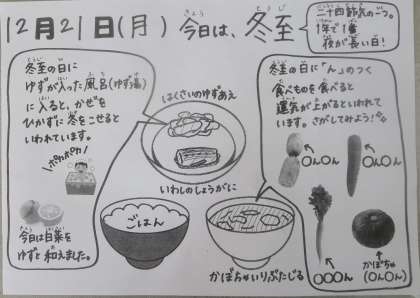 12月21日(月) 今日は、冬至
きょう
とうじ
二十四節気の一つ。
1年で1番
夜が長い日!
冬至の日に
ゆずが入った風呂(ゆず湯)
に入ると、かぜを
ひかずに冬をこせると
いわれています。
ポカポカ
今日は白菜を
ゆずと和えました。
はくさいのゆずあえ
いわしのしょうがに
ごはん
かぼちゃいりぶたじる
冬至の日に「ん」のつく
食べものを食べると
運気が上がるといわれて
います。さがしてみよう!
〇ん〇ん
〇ん〇ん
〇〇〇ん
かぼちゃ
(〇ん〇ん)